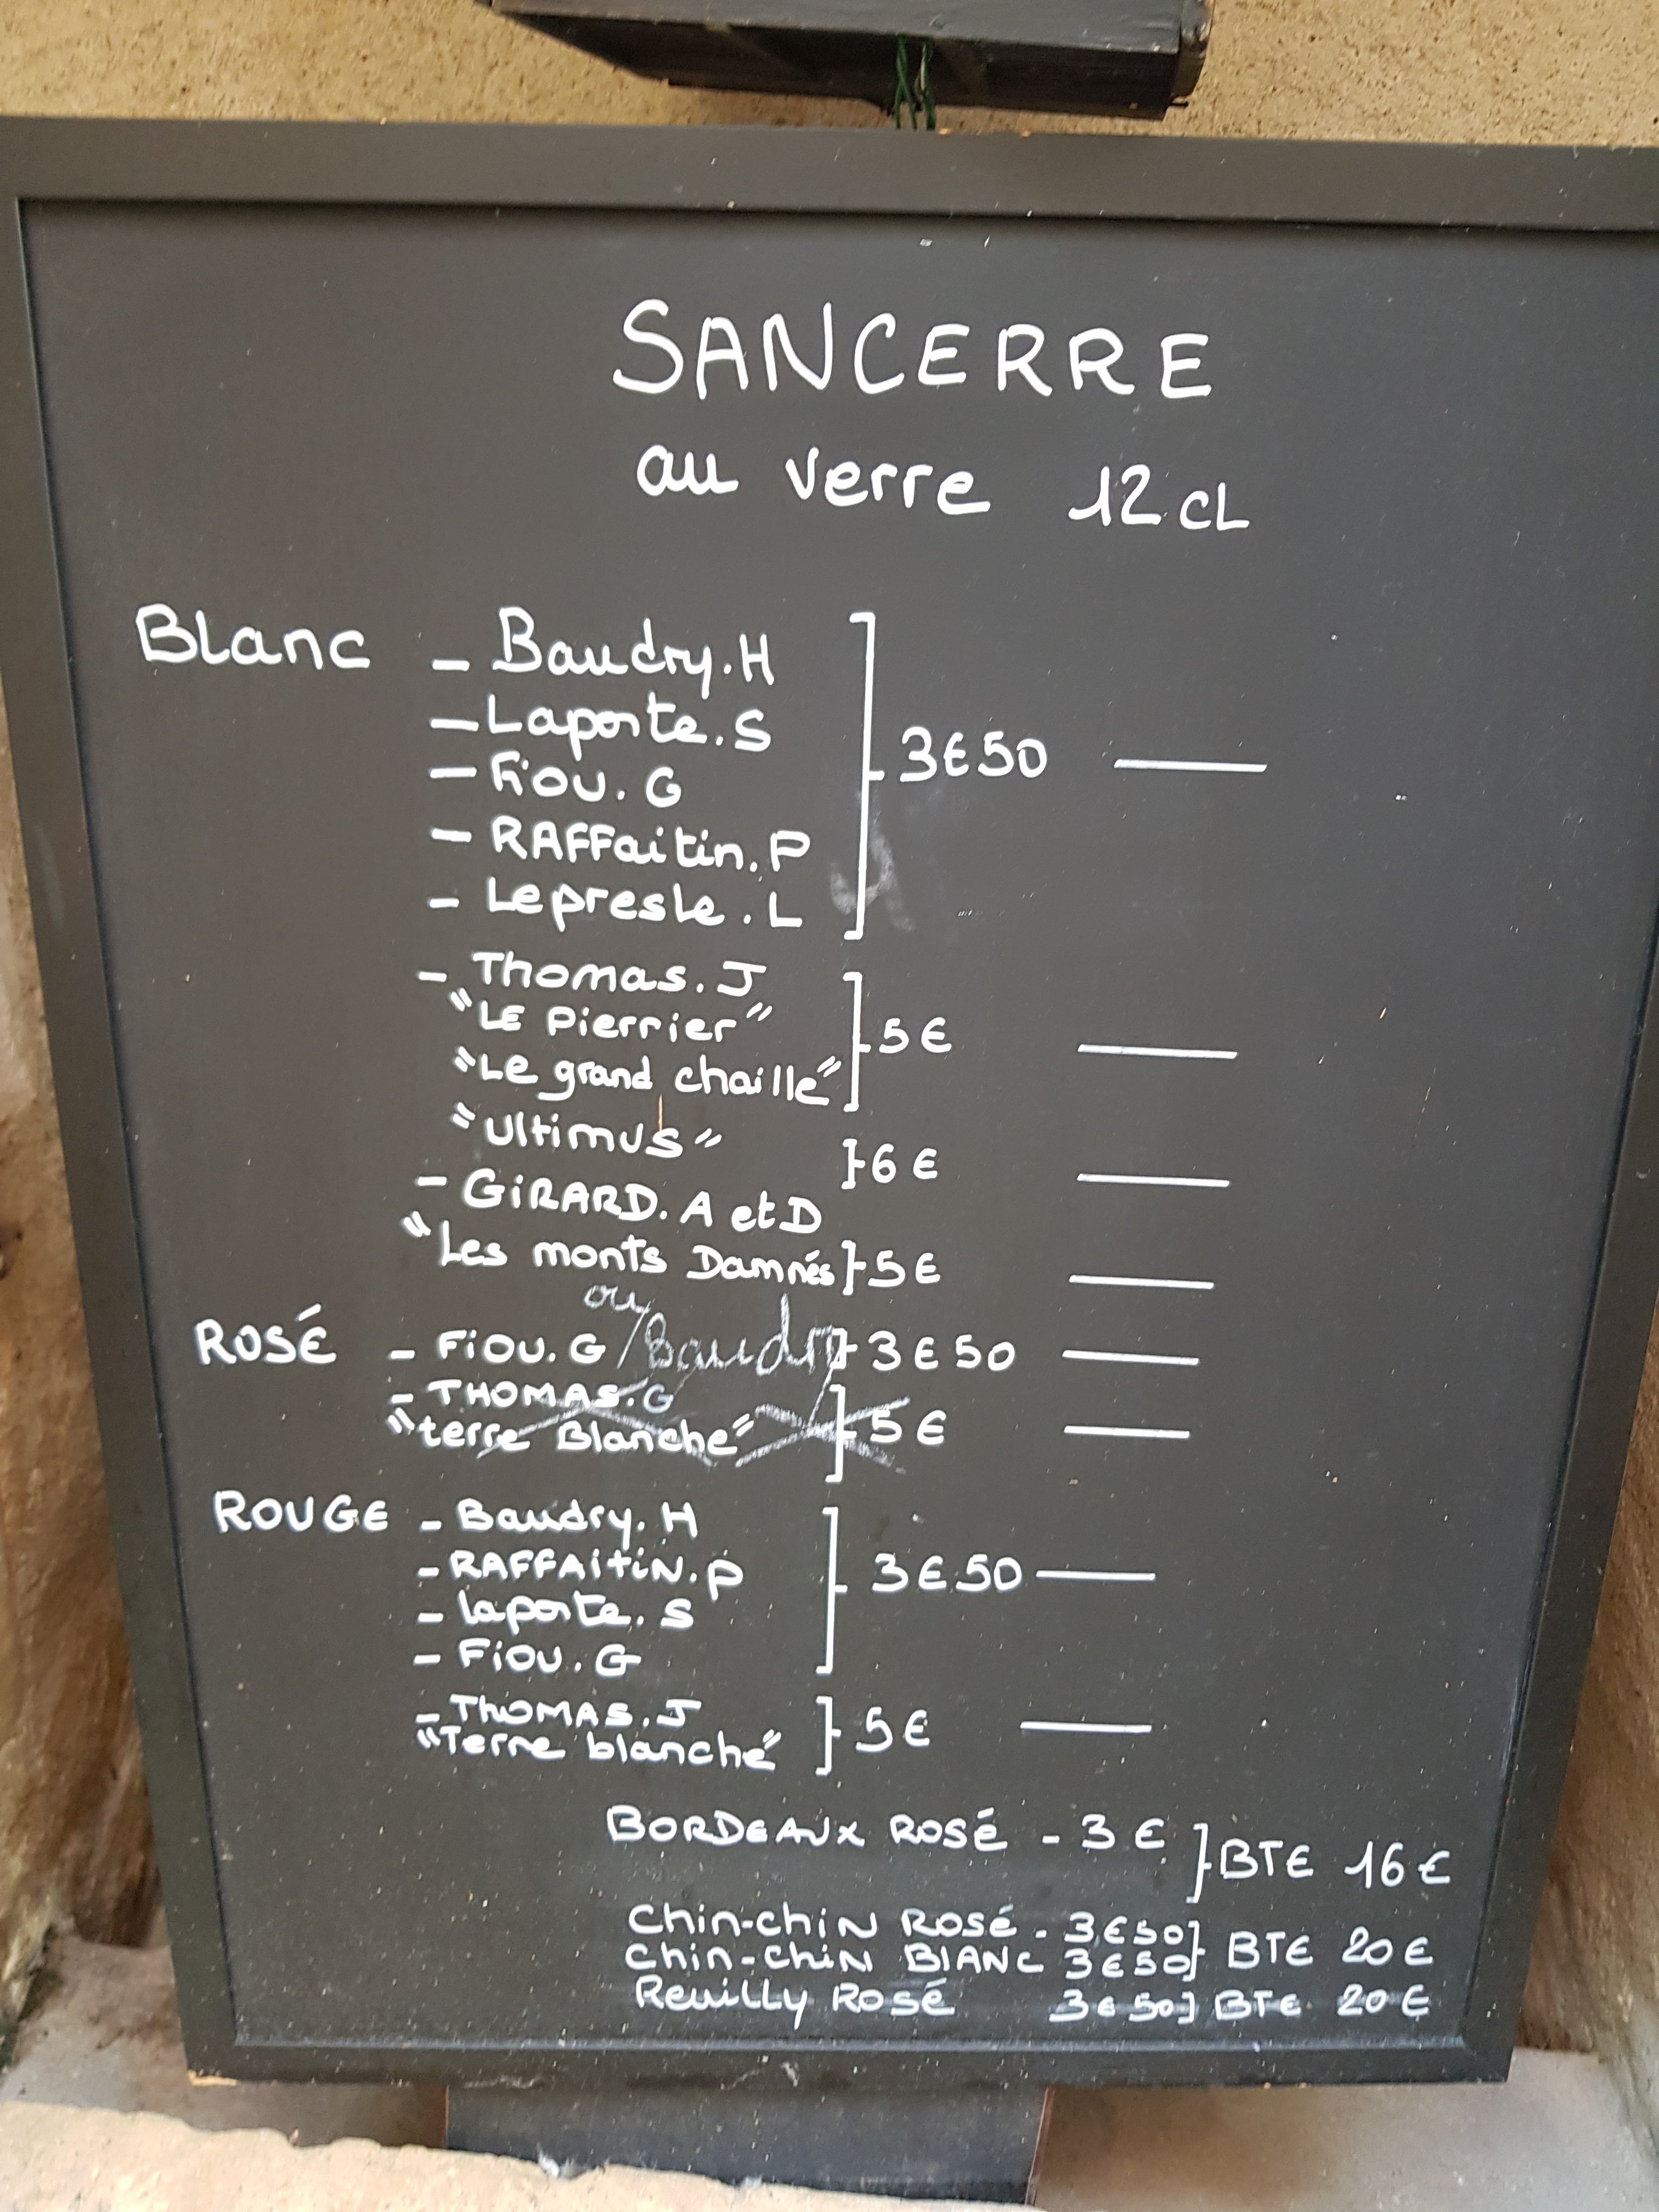 SANCERRE
au verre 12 cL
Blanc - Baudry.H
- Laporte.S
3€50
- Fiou.G
- RAFFaitin.P
- Lepresle.L
- Thomas.J
"LE Pierrier"
5€
"Le grand chaille"
"Ultimus"
6€
- GiRARD.A et D
"Les monts Damnés
5€
ou
ROSÉ - Fiou.G / Baudry 3€50
- THOMAS.G
"terre Blanche" 5€
ROUGE - Baudry.H
- RAFFAitiN.P 3€50
- laporte.S
- Fiou.G
- THOMAS.J
"Terre blanche" 5€
BORDEAUX ROSÉ - 3€
BTE 16€
Chin-chiN ROSÉ - 3€50
BTE 20€
Chin-chiN BlANC 3€50
Reuilly ROSÉ 3€50 BTE 20€